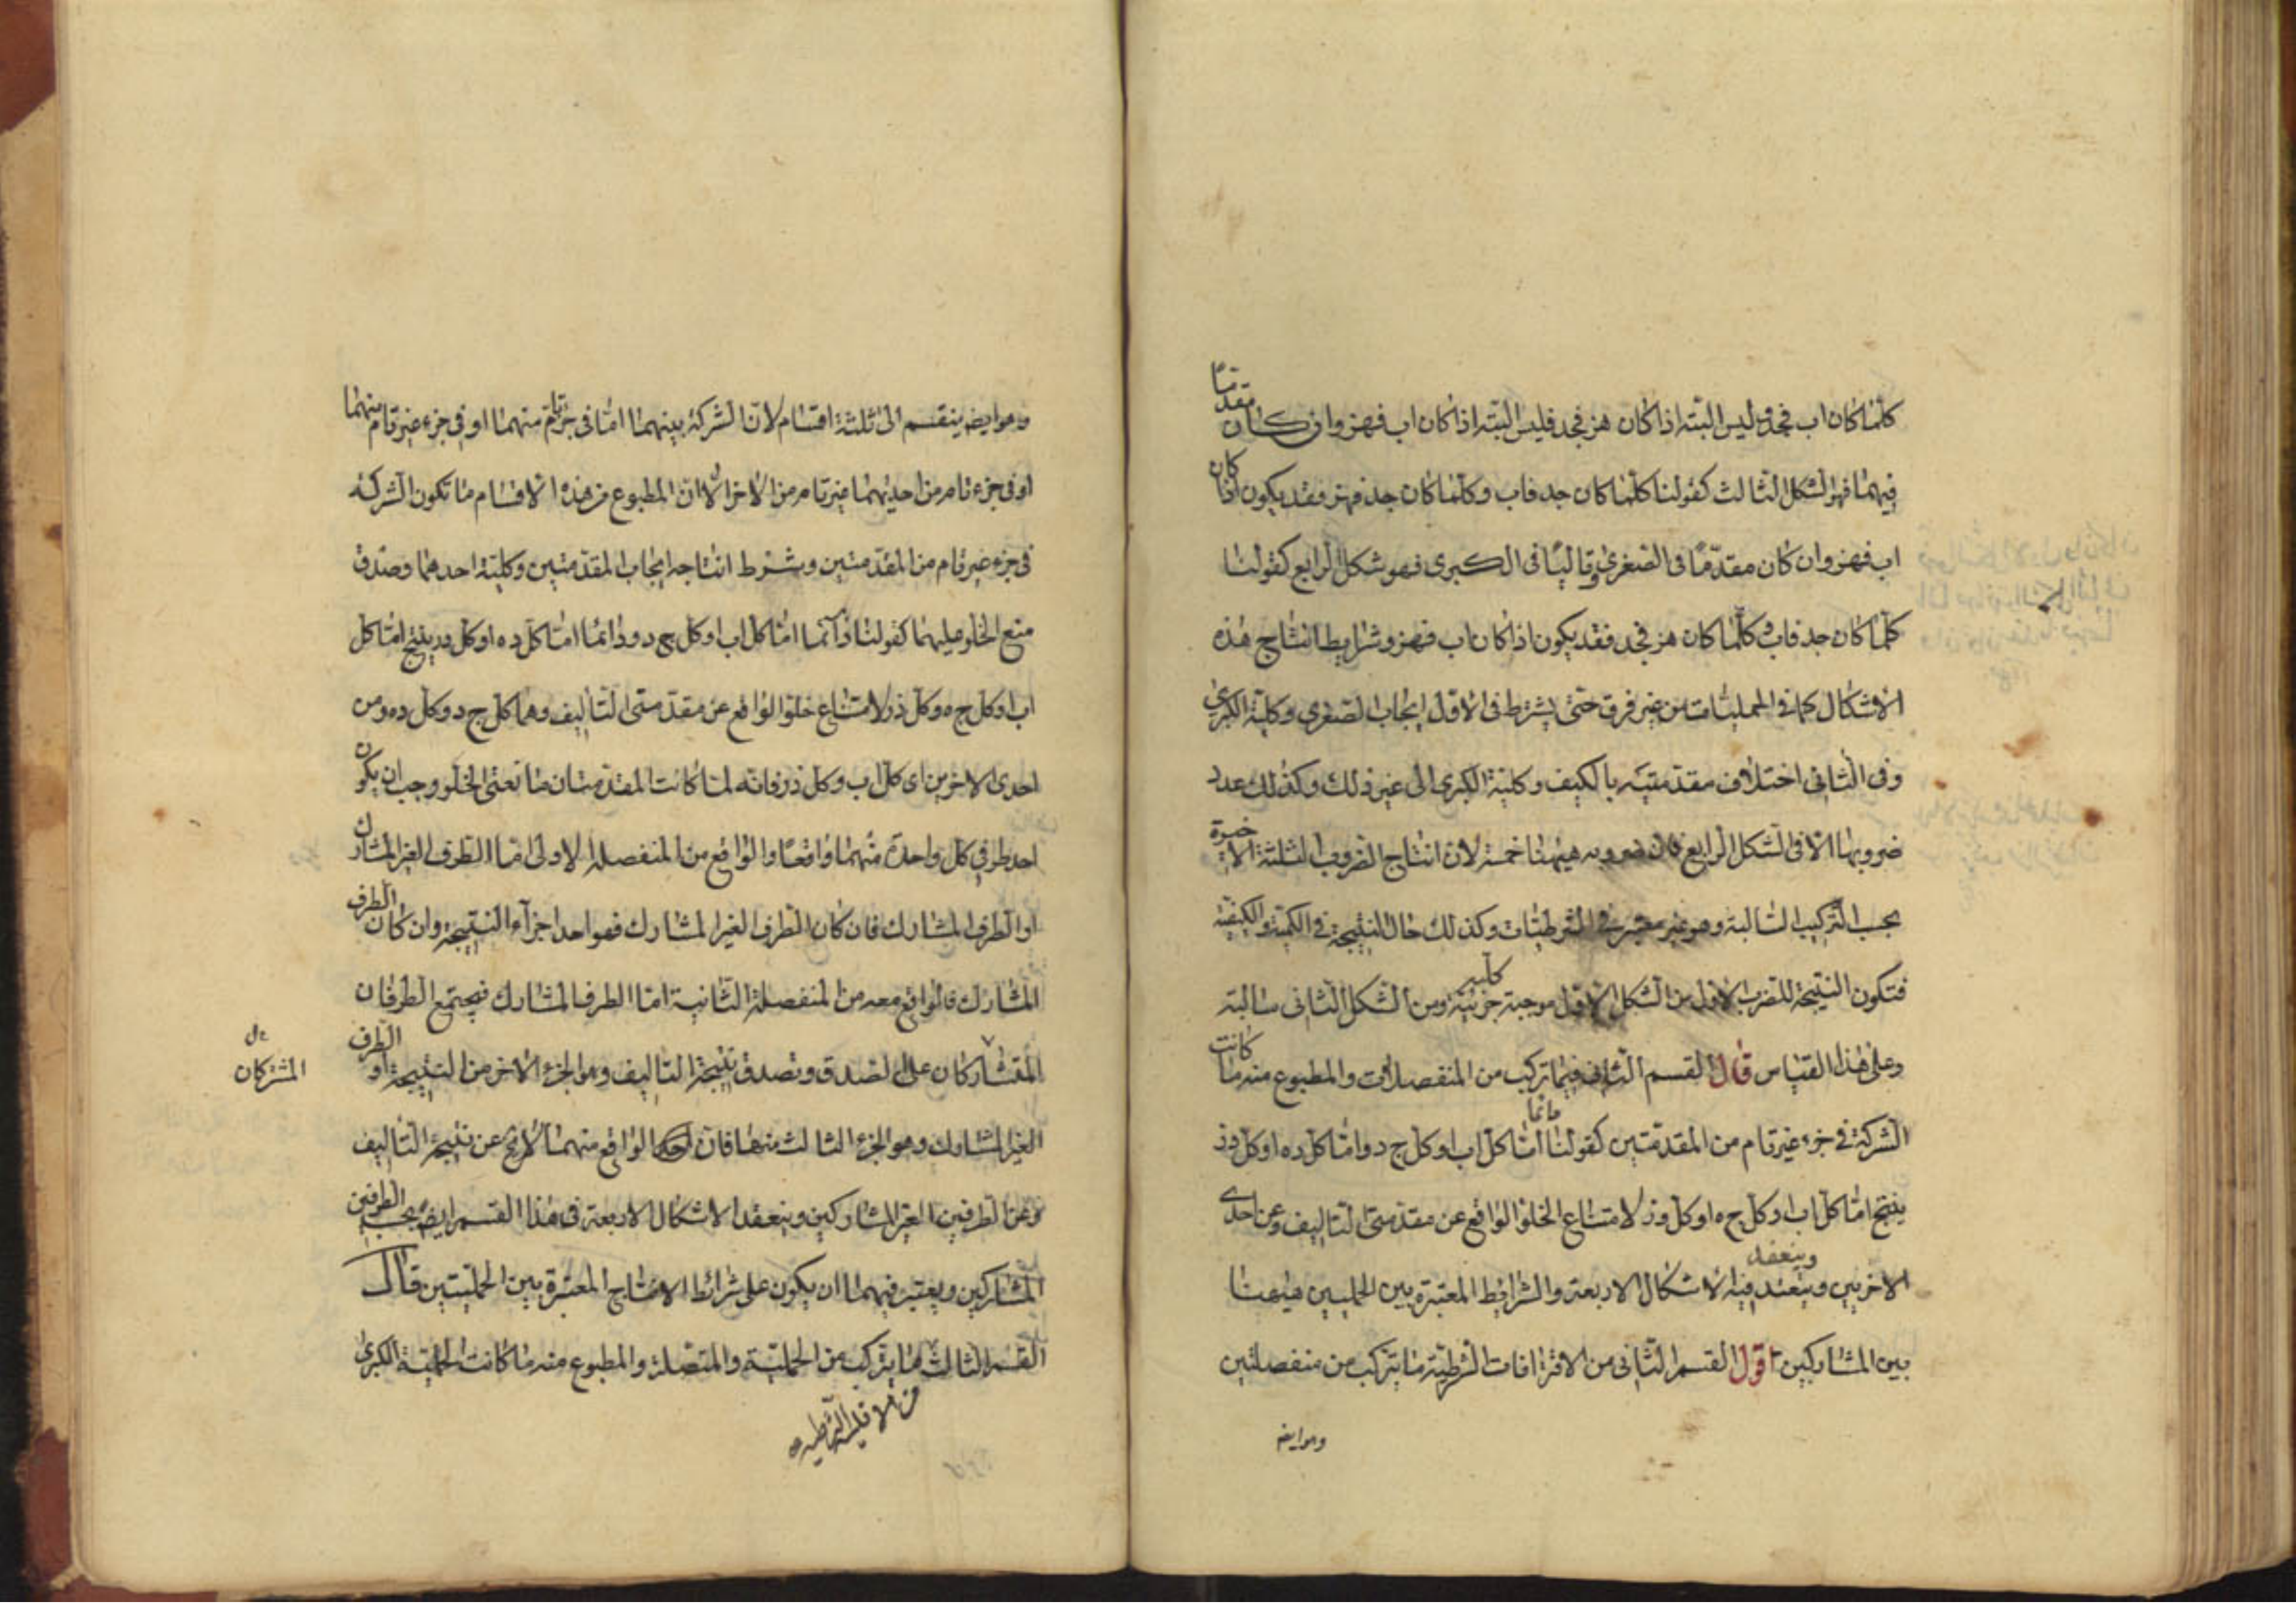 كلما كان اب فجد وليس البتة اذا كان هز فجد فليس البتة اذا كان اب فهز وان كان مقدمًا
فيهما فهو الشكل الثالث كقولنا كلما كان جد فاب وكلما كان جد فهز فقد يكون اذا كان
اب فهز وان كان مقدّمًا فى الصغرى وتاليًا فى الكبرى فهو شكل الرابع كقولنا
كلما كان جد فاب وكلما كان هز فجد فقد يكون اذا كان اب فهز وشرايط انتاج هذه
الاشكال كما فى الحمليات من غير فرق حتى يشترط فى الاول ايجاب الصغرى وكلية الكبرى
وفى الثانى اختلاف مقدمتيه بالكيف وكلية الكبرى الى غير ذلك وكذلك عدد
ضروبها الا فى الشكل الرابع فان ضروبه هيهنا خمسة لان انتاج الضروب الثلثة الاخيرة
بحسب التركيب السالبة وهو غير معتبر فى الشرطيات وكذلك حال النتيجة فى الكمية والكيفية
فتكون النتيجة للضرب الاول من الشكل الاول موجبة كلية جزئية ومن الشكل الثانى سالبة
وعلى هذا القياس قال القسم الثانى فيما تركب من المنفصلات والمطبوع منه ما كانت
الشركة فى جزء غير تام من المقدمتين كقولنا دائما اما كل اب او كل ج د واما كل ده او كل دز
ينتج اما كل اب او كل ج ه او كل وز لامتناع الخلو الواقع عن مقدمتى التاليف وعن احدى
الاخريين وينعقد فيه الاشكال الاربعة والشرايط المعتبرة بين الحمليين هيهنا
وينعقد
بين المشاركين اقول القسم الثانى من الاقترانات الشرطية ما يتركب من منفصلتين
وهو ايضه
وهو ايضه ينقسم الى ثلثة اقسام لان الشركة بينهما اما فى جزء تام منهما او فى جزء غير تام منهما
او فى جزء تام من احديهما غير تام من الاخر الا ان المطبوع من هذه الاقسام ما تكون الشركة
فى جزء غير تام من المقدمتين وشرط انتاجه ايجاب المقدمتين وكلية احدهما وصدق
منع الخلو عليهما كقولنا دائما اما كل اب او كل ج د ودائما اما كل ده او كل در ينتج اما كل
اب او كل ج ه وكل دز لامتناع خلو الواقع عن مقدمتى التاليف وهما كل ج د وكل ده ومن
احدى الاخرين اى كل اب وكل دز فانه لما كانت المقدمتان مانعتى الخلو وجب ان يكون
احد طرفى كل واحدة منهما واقعًا والواقع من المنفصلة الاولى اما الطرف الغير المشارك
او الطرف المشارك فان كان الطرف الغير المشارك فهو احد اجزآء النتيجة وان كان الطرف
المشارك فالواقع معه من المنفصلة الثانية اما الطرف المشارك فيجتمع الطرفان
المتشاركان على الصدق وتصدق نتيجة التاليف وهو الجزء الاخر من النتيجة او الطرف
المشتركان
الغير المشارك وهو الجزء الثالث منها فان الواقع منهما لا يخ عن نتيجة التاليف
وعن الطرفين الغير المشاركين وينعقد الاشكال الاربعة فى هذا القسم ايضه بحسب الطرفين
المشاركين ويعتبر فيهما ان يكون على شرائط الانتاج المعتبرة بين الحمليتين قال
القسم الثالث ما يتركب من الحملية والمتصلة والمطبوع منه ما كانت الحملية الكبرى
من الاقيسة الشرطية